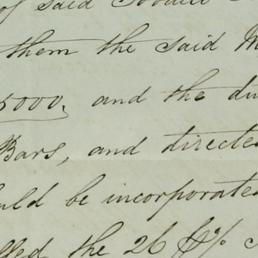 of said Tobacco
them the said M
5000, and the du
Bars, and directe
uld be incorporate
lled the 26